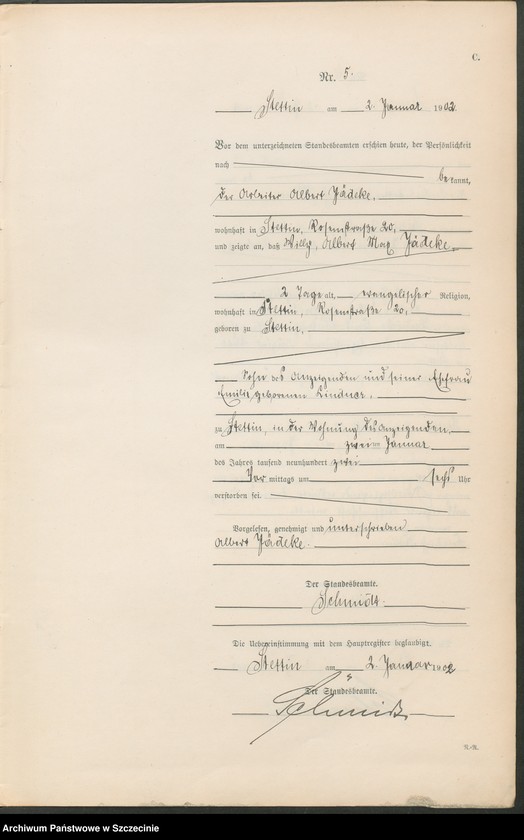 C.
Nr. 5.
Stettin am 2. Januar 1902
Vor dem unterzeichneten Standesbeamten erschien heute, der Persönlichkeit
nach
be kannt,
der Arbeiter Albert Jädcke.
wohnhaft in Stettin, Rosenstraße 20.
und zeigte an, daß Willy, Albert Max Jädcke.
2 Tage alt, evangelischer Religion,
wohnhaft in Stettin, Rosenstraße 20.
geboren zu Stettin.
Sohn des Anzeigenden und seiner Ehefrau
Emilie, geborenen Lindner.
zu Stettin, in der Wohnung des Anzeigenden
am zweiten Januar
des Jahres tausend neunhundert zwei
Vor mittags um sechs Uhr
verstorben sei.
Vorgelesen, genehmigt und unterschrieben
Albert Jädcke.
Der Standesbeamte.
Schmidt
Die Uebereinstimmung mit dem Hauptregister beglaubigt.
Stettin am 2. Januar 1902
Der Standesbeamte.
Schmidt
R.-R.
Archiwum Państwowe w Szczecinie